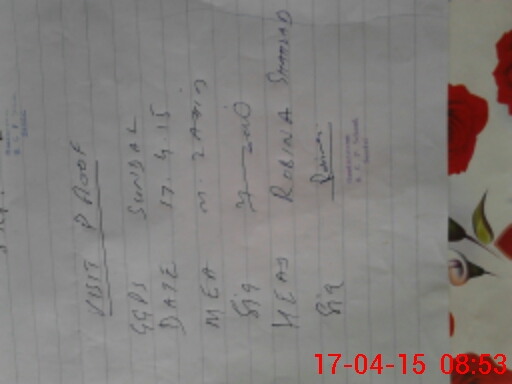 VISIT PROOF
GGPS SUNDAL
DATE 17.4.15
MEA M. ZAHID
Sig
HEAD ROBINA SHAHZAD
Sig Robina
17-04-15 08:53